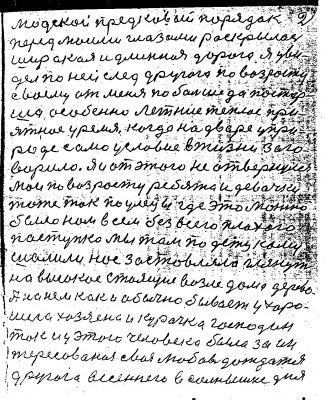 людской предковый порядак
перед моими глазами раскрылась
широкая и длинная дорога. Я уви
дел по ней след другога по возросту
своему от меня побольше да поступ
ша, особенно летние теплое при
ятное время, когда на дваре у при
роде само условие в жизни заго
ворило. Я от этого не отвернулся
мои по возросту ребята и девачки
тоже так поумели где это можно
было нам всем без всего плахого
поступка мы там по детускаму
шалили, нас заставляло глянуть
на высокое стоящие возле дома дерево.
Я на нем как и обычно бывает у харо-
шега хозяена и курачка господин
так и у этого человека была за ин
тересованая своя любовь дождатся
другога весеннего в солнышке дня